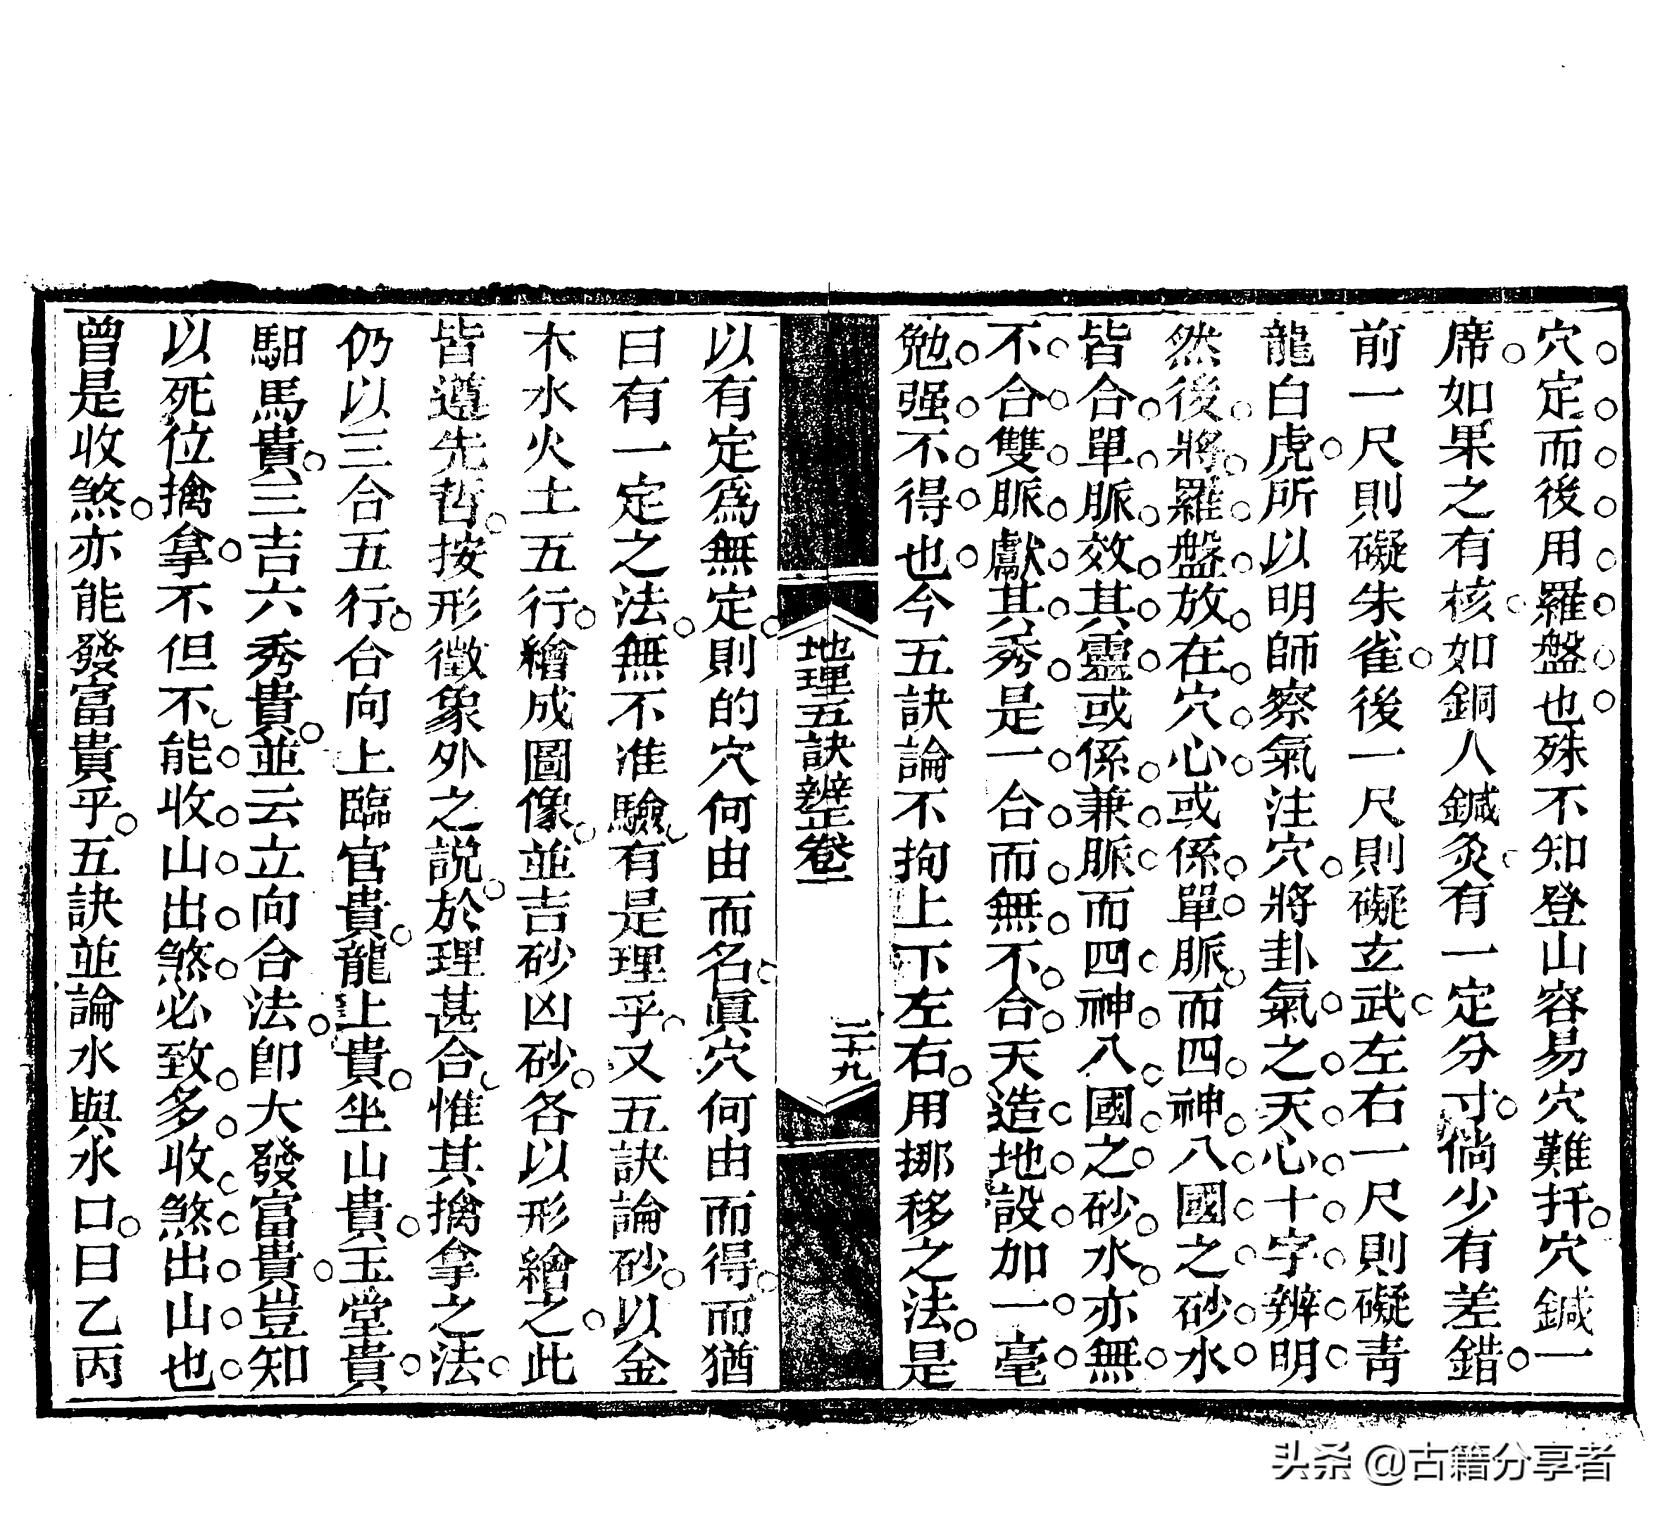 穴定而後用羅盤也殊不知登山容易穴難扦穴鍼一
席如果之有核如銅人鍼灸有一定分寸倘少有差錯
前一尺則礙朱雀後一尺則礙玄武左右一尺則礙靑
龍白虎所以明師察氣注穴將卦氣之天心十字辨明
然後將羅盤放在穴心或係單脈而四神八國之砂水
皆合單脈效其靈或係兼脈而四神八國之砂水亦無
不合雙脈獻其秀是一台而無不合天造地設加一毫
勉强不得也今五訣論不拘上下左右用挪移之法是
地理五訣辨正卷一
二十九
以有定爲無定則的穴何由而名眞穴何由而得而猶
曰有一定之法無不准驗有是理乎又五訣論砂以金
木水火土五行繪成圖像並吉砂凶砂各以形繪之此
皆遵先哲按形徵象外之說於理甚合惟其擒拿之法
仍以三合五行合向上臨官貴龍上貴坐山貴玉堂貴
馹馬貴三吉六秀貴並云立向合法卽大發富貴豈知
以死位擒拿不但不能收山出煞必致多收煞出山也
曾是收煞亦能發富貴乎五訣並論水與水口曰乙丙
头条 @古籍分享者